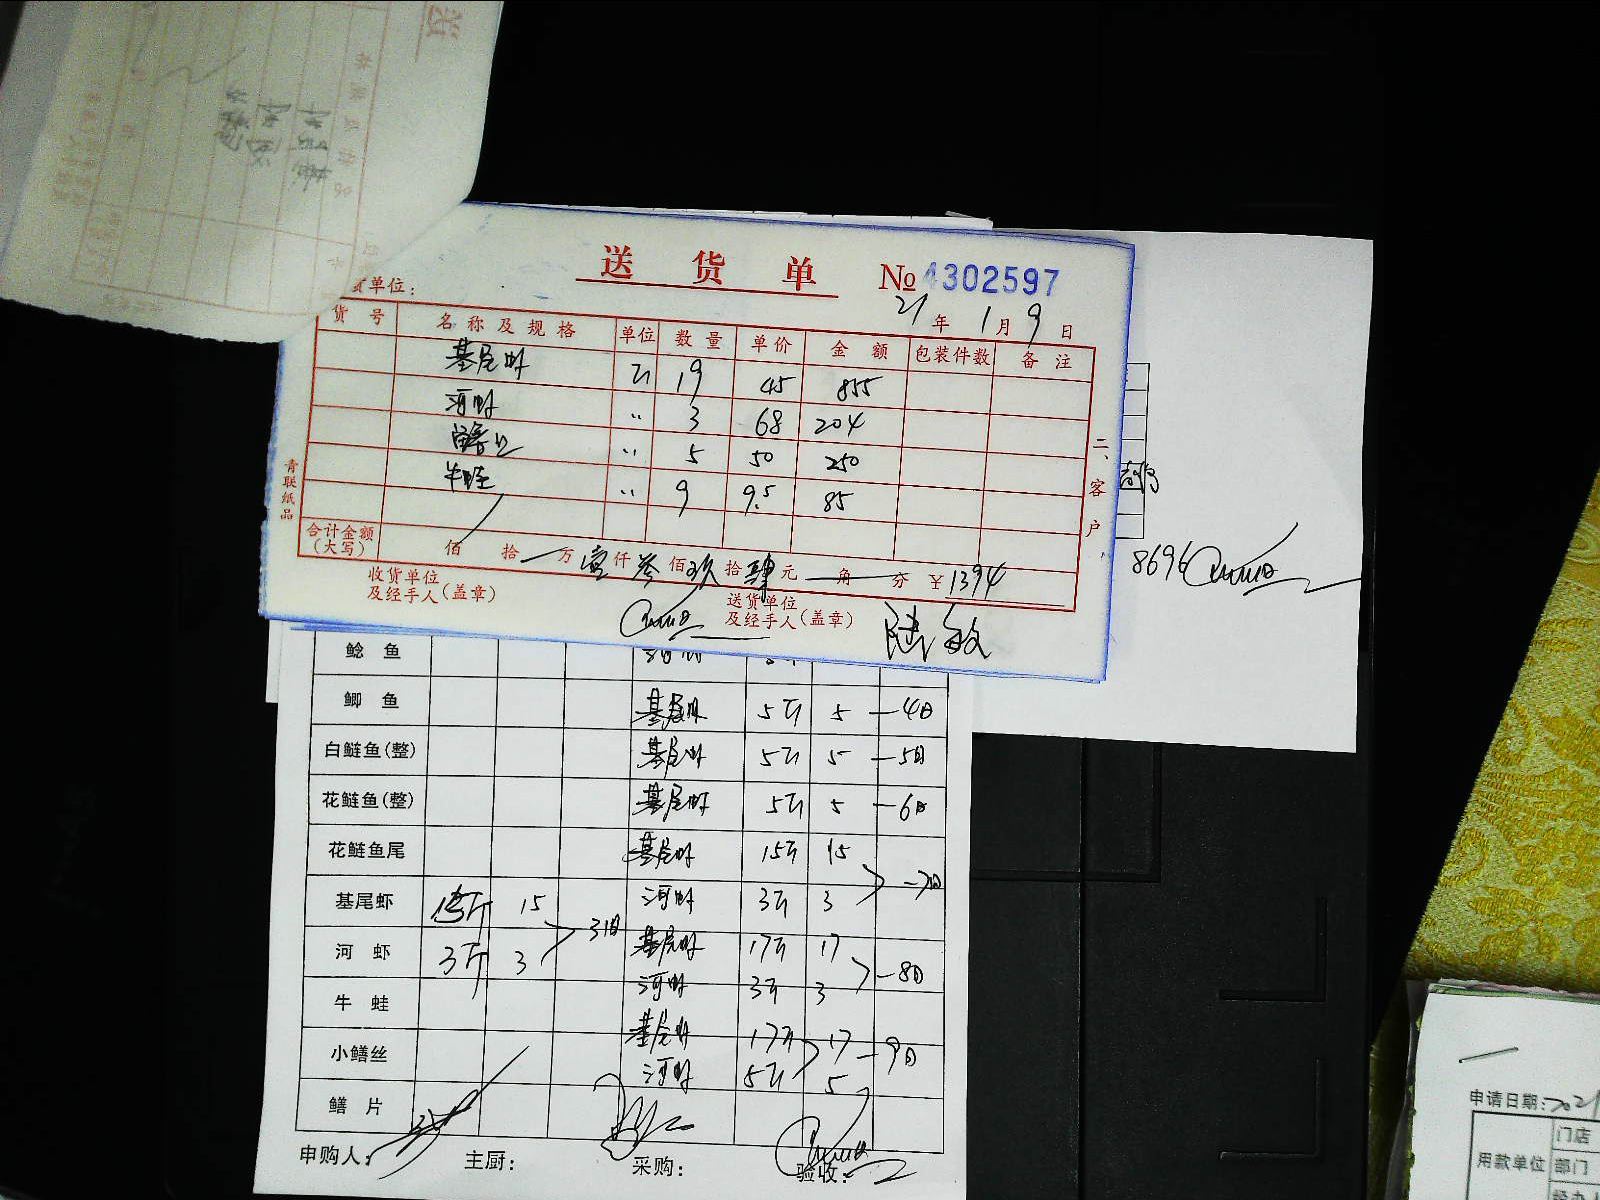 送货单 №4302597
货单位：
21年1月9日
货号 名称及规格 单位 数量 单价 金额 包装件数 备注
基尾虾 斤 19 45 855
河虾 〃 3 68 204
〃 5 50 250
牛蛙 〃 9 9.5 85
合计金额（大写） 佰 拾 万 壹仟叁佰玖拾肆元 角 分 ¥1394
收货单位及经手人（盖章） 送货单位及经手人（盖章） 陆敏
青联纸品
二、客户
8696
鲶鱼
鲫鱼 基尾虾 5斤 5 —4日
白鲢鱼(整) 基尾虾 5斤 5 —5日
花鲢鱼(整) 基尾虾 5斤 5 —6日
花鲢鱼尾 基尾虾 15斤 15 —7日
基尾虾 15斤 15 3日 河虾 3斤 3
河虾 3斤 3 基尾虾 17斤 17 —8日
牛蛙 河虾 3斤 3
小鳝丝 基尾虾 17斤 17 —9日
河虾 5斤 5
鳝片
申购人： 主厨： 采购： 验收：
申请日期：
用款单位 门店
部门